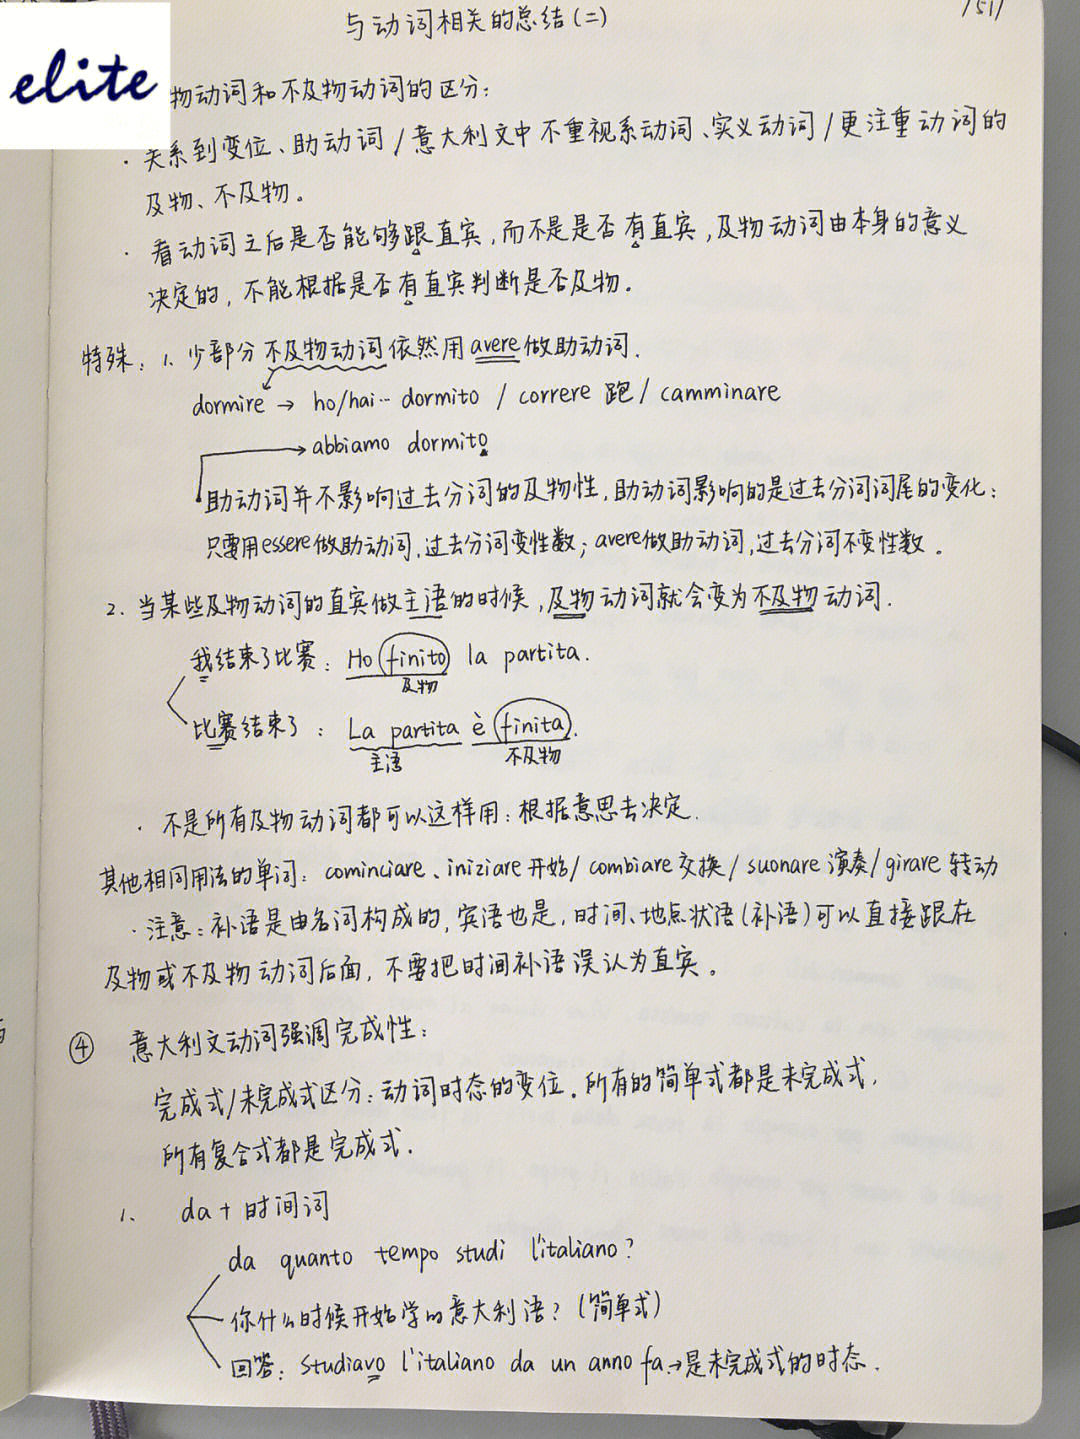 与动词相关的总结(二)
151
elite
物动词和不及物动词的区分:
· 关系到变位、助动词/意大利文中不重视系动词、实义动词/更注重动词的
及物、不及物。
· 看动词之后是否能够跟直宾,而不是是否有直宾,及物动词由本身的意义
决定的,不能根据是否有直宾判断是否及物.
特殊: 1. 少部分不及物动词依然用avere做助动词.
dormire → ho/hai… dormito / correre 跑 / camminare
abbiamo dormito
助动词并不影响过去分词的及物性,助动词影响的是过去分词词尾的变化:
只要用essere做助动词,过去分词变性数; avere做助动词,过去分词不变性数。
2. 当某些及物动词的直宾做主语的时候,及物动词就会变为不及物动词.
我结束了比赛: Ho finito la partita.
及物
比赛结束了: La partita è finita.
主语 不及物
· 不是所有及物动词都可以这样用:根据意思去决定.
其他相同用法的单词: cominciare、iniziare 开始/ combiare 交换/ suonare 演奏/ girare 转动
· 注意:补语是由名词构成的,宾语也是,时间、地点状语(补语)可以直接跟在
及物或不及物动词后面,不要把时间补语误认为直宾。
④ 意大利文动词强调完成性:
完成式/未完成式区分:动词时态的变位。所有的简单式都是未完成式,
所有复合式都是完成式.
1. da + 时间词
da quanto tempo studi l'italiano?
你什么时候开始学的意大利语?(简单式)
回答: studiavo l'italiano da un anno fa.→是未完成式的时态.